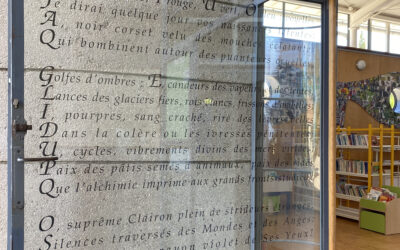 rouge, U vert, O
Je dirai quelque jour vos naissances
A, noir corset velu des mouches éclatantes
Qui bombinent autour des puanteurs cruelles
Golfes d'ombres ; E, candeurs des vapeurs et des
Lances des glaciers fiers, rois blancs, frissons d'ombelles
I, pourpres, sang craché, rire des lèvres belles
Dans la colère ou les ivresses pénitentes
U, cycles, vibrements divins des mers virides
Paix des pâtis semés d'animaux, paix des rides
Que l'alchimie imprime aux grands fronts studieux
O, suprême Clairon plein de strideurs étranges
Silences traversés des Mondes et des Anges
rayon violet de Ses Yeux!